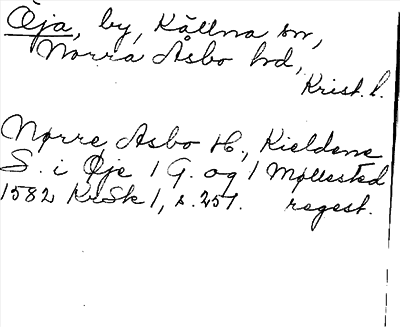 Öja, by, Källna sn,
Norra Åsbo hd,
Krist. l.
Nørre Asbo H., Kieldene
S. i Øje 1 G. og 1 Møllested
1582 KrSk 1, s. 257. regest.